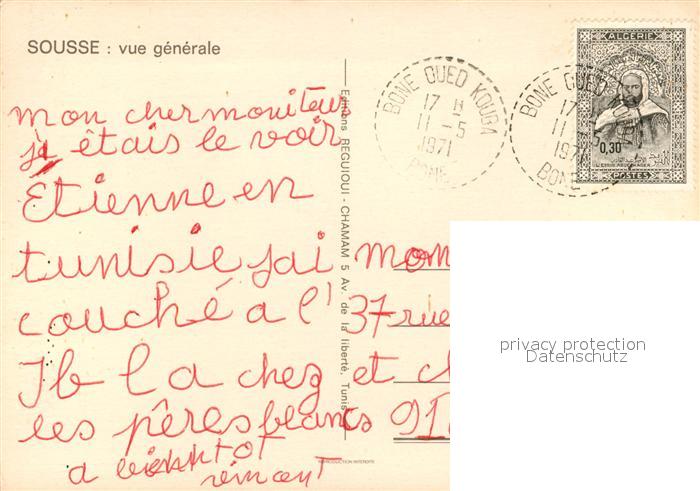 SOUSSE : vue générale
mon cher moniteur
j étais le voir
Etienne en
tunisie jai
couché a l'
I b l a chez
les pêres beancs
a bientot
mon
37 rue
et
91
Editions REGUIOUI - CHAMAM 5 Av. de la liberté, Tunis
REPRODUCTION INTERDITE
BONE OUED KOUBA
17 H
11 - 5
1971
BONE
BONE OUED
17
11
1971
BONE
ALGERIE
0,30
POSTES
privacy protection
Datenschutz